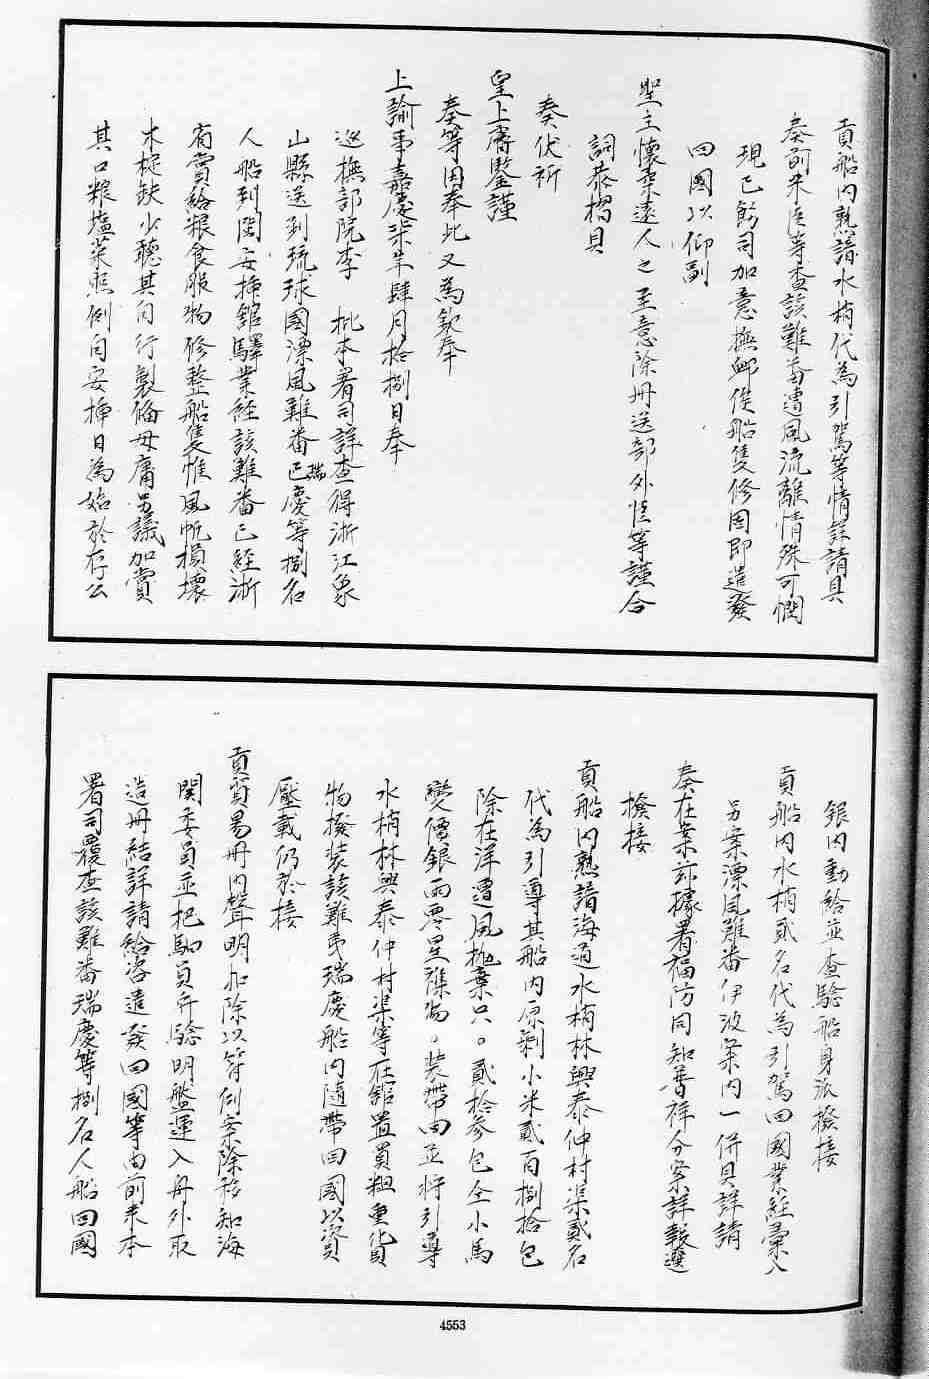 貢船內熟諳水梢代為引駕等情詳請具
奏前來臣等查該難番遭風流離情殊可憫
現已飭司加意撫卹俟船隻修固即遣發
回國以仰副
聖主懷柔遠人之至意除冊送部外恁等謹合
詞恭摺具
奏伏祈
皇上睿鑒謹
奏等因奉此又為欽奉
上諭事嘉慶柒年肆月拾捌日奉
巡撫部院李 批本署司詳查得浙江象
山縣送到琉球國漂風難番瑞慶等捌名
人船到閩安插館驛業經該難番已經浙
省賞給粮食服物修整船隻惟風帆損壞
木椗缺少聽其自行製俻毋庸另議加賞
其口粮塩菜照例自安插日為始於存公
銀內動給並查驗船身派撥接
貢船內水梢貳名代為引駕回國業經彙入
另案漂風難番伊波案內一併具詳請
奏在案茲據署福防同知普祥分案詳報選
撥接
貢船內熟諳海道水梢林興泰仲村渠貳名
代為引導其船內原剩小米貳百捌拾包
除在洋遭風拋棄只○貳拾叄包仝小馬
變價銀兩零星雜物○裝帶回並將引導
水梢林興泰仲村渠等在館置買粗重貨
物撥裝該難番瑞慶船內隨帶回國以資
壓載仍於接
貢貿易冊內聲明扣除以符例案除移知海
関委員並把馹員弁驗明盤運入舟外取
造冊結詳請給咨遣發回國等由前來本
署司覆查該難番瑞慶等捌名人船回國
4553